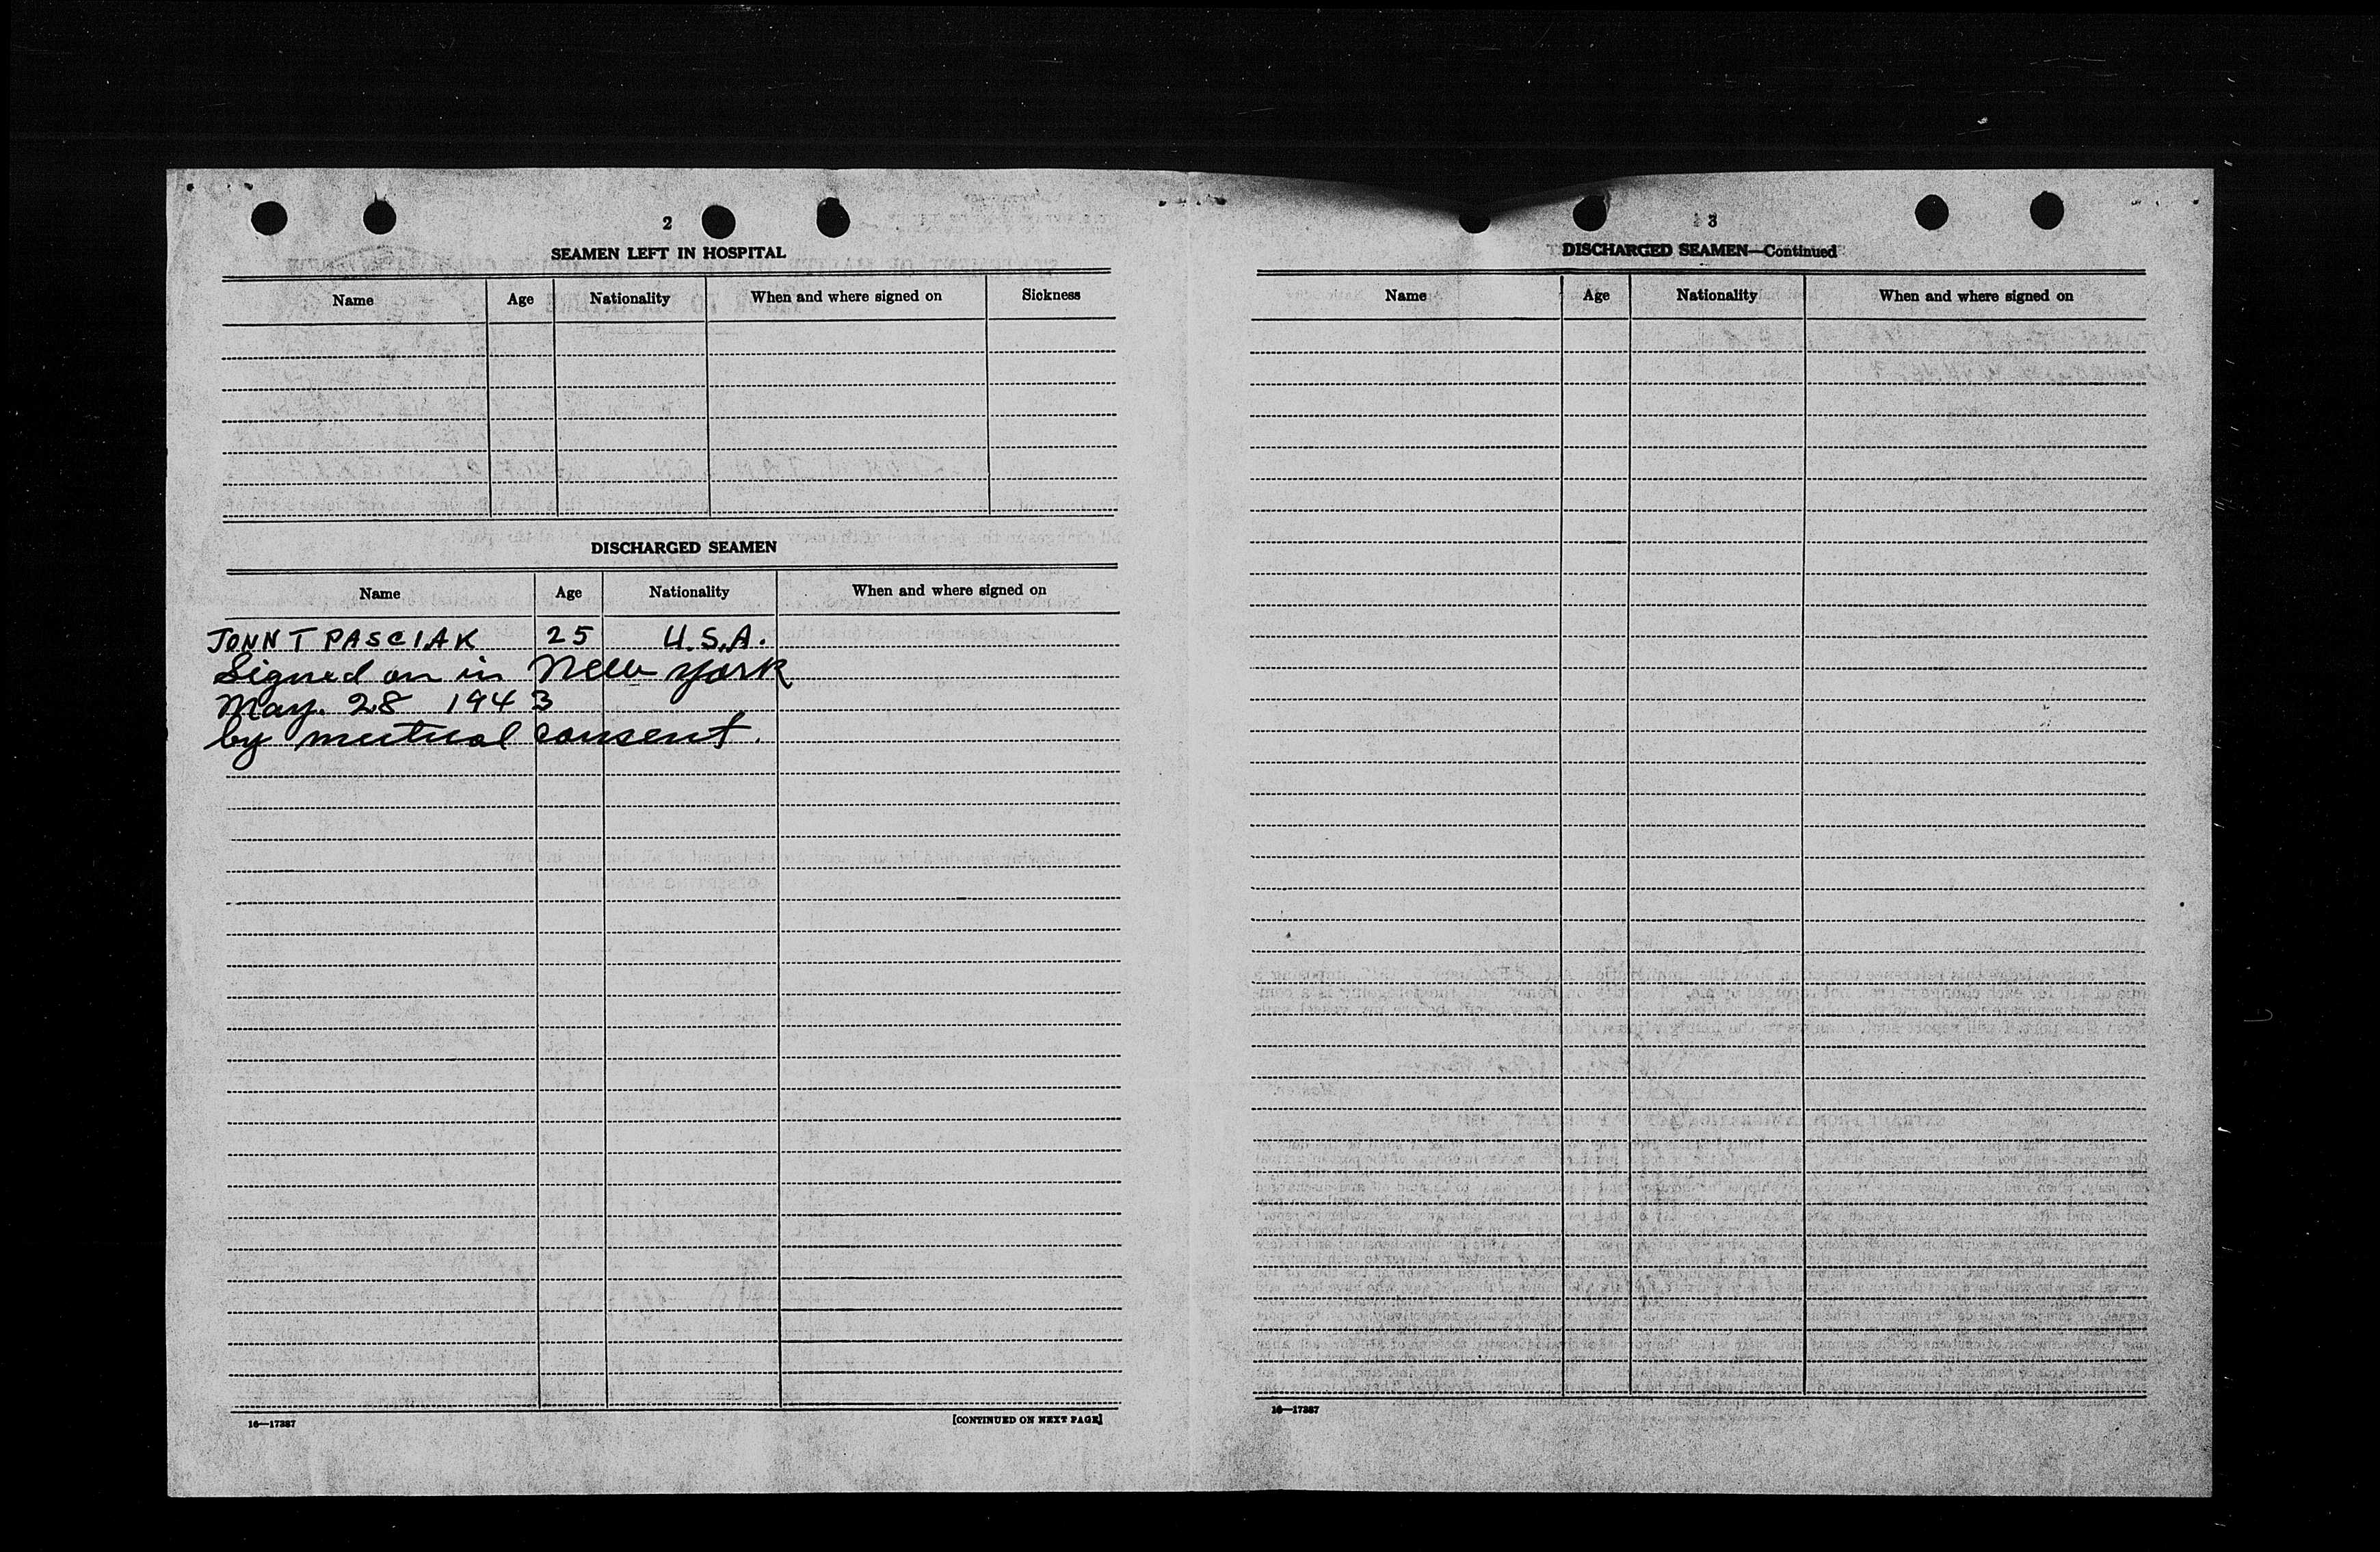 2
SEAMEN LEFT IN HOSPITAL
Name Age Nationality When and where signed on Sickness
DISCHARGED SEAMEN
Name Age Nationality When and where signed on
JOHN T PASCIAK 25 U.S.A.
Signed on in New York
May. 28 1943
by mutual consent.
16—17387
[CONTINUED ON NEXT PAGE]
3
DISCHARGED SEAMEN—Continued
Name Age Nationality When and where signed on
16—17387